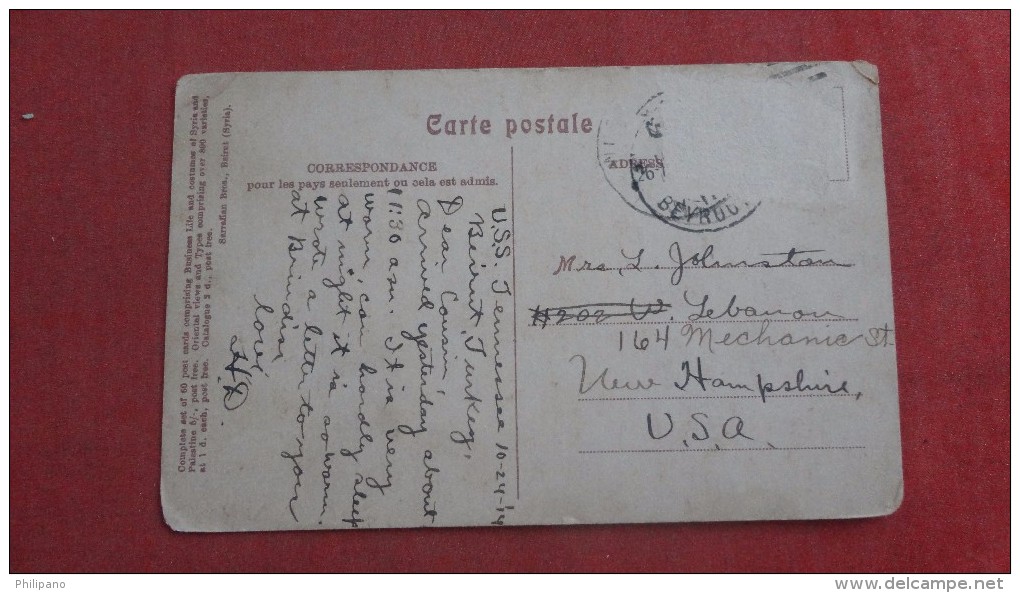 Carte postale
CORRESPONDANCE
pour les pays seulement ou cela est admis.
ADRESSE
BEYROUT
U.S.S. Tennessee 10-24-'14
Beirut, Turkey,
Dear Cousin
arrived yesterday about
11:30 a.m. It is very
warm, can hardly sleep
at night it is so warm.
wrote a letter to you
at Brindisi
love,
H.D.
Mrs. L. Johnston
#202 W. Lebanon
164 Mechanic St
New Hampshire,
U.S.A.
Complete set of 60 post cards comprising Business Life and costumes of Syria and
Palestine 5/, post free. Oriental views and Types comprising over 800 varieties,
at 1 d. each, post free. Catalogue 2 d., post free.
Sarrafian Bros., Beirut (Syria).
Philipano
www.delcampe.net